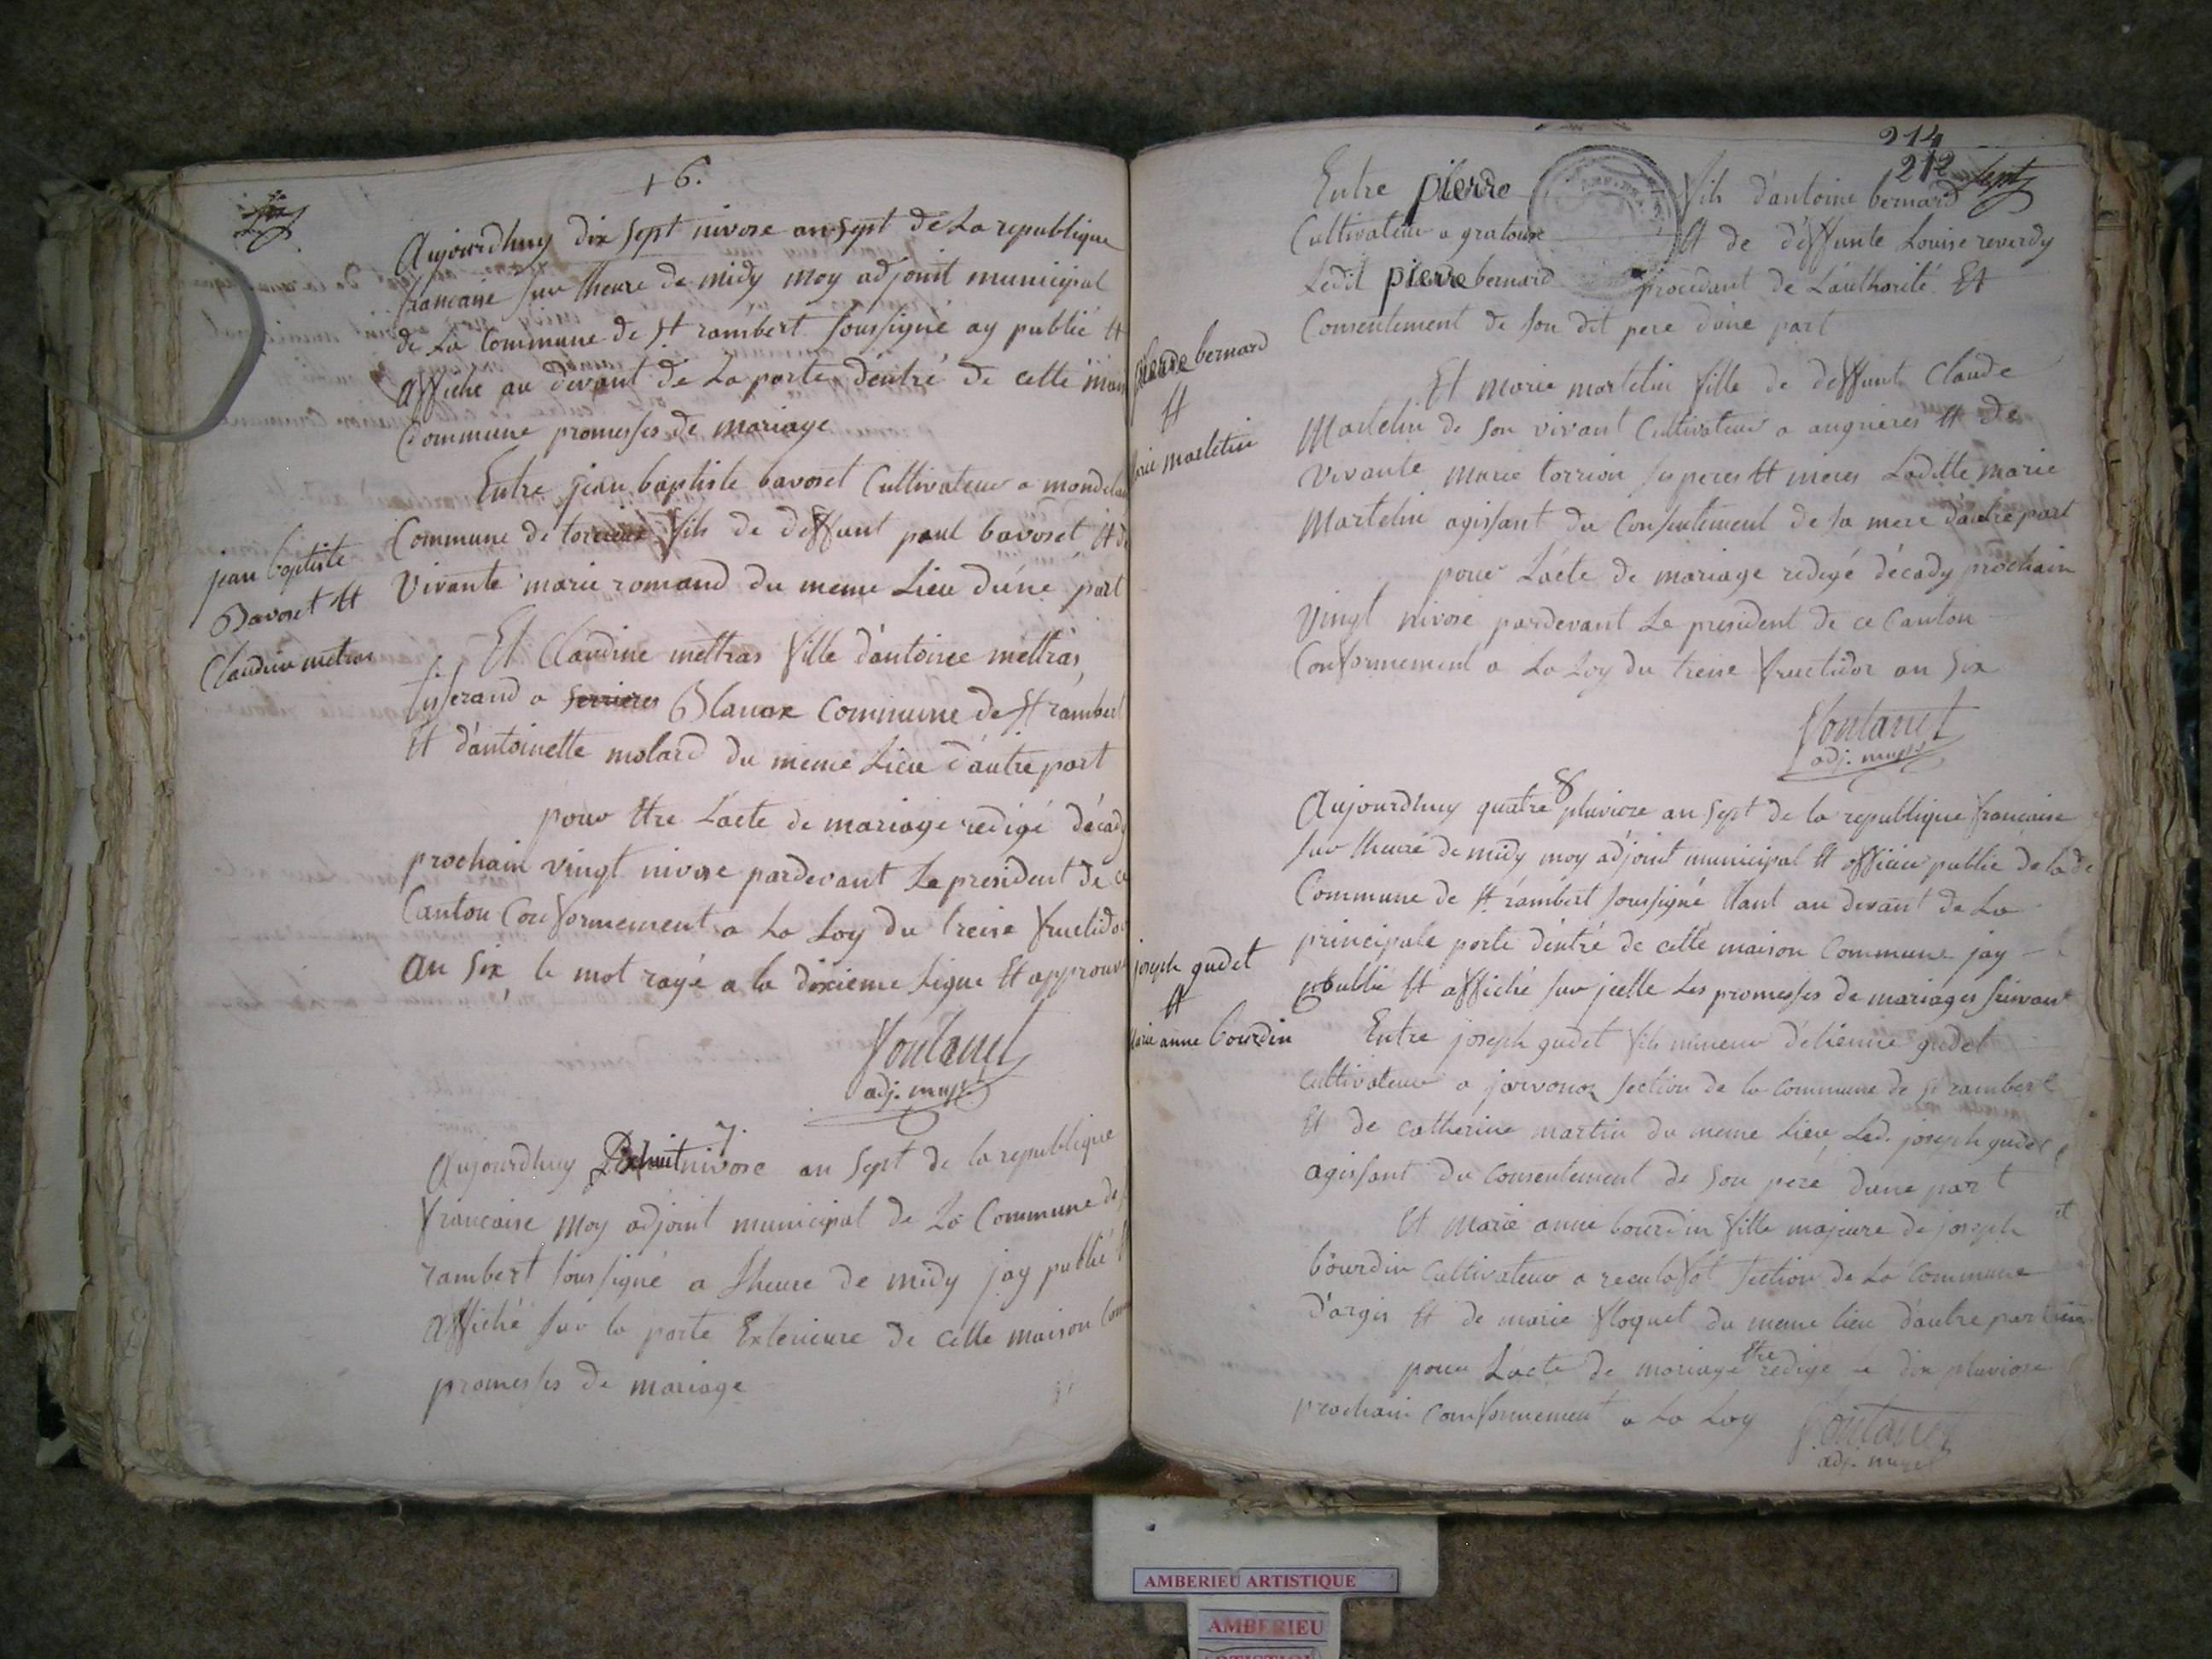 6.
Aujourdhuy dix sept nivose an sept de La republique
francaise sur lheure de midy moy adjoint municipal
de La Commune de St. rambert soussigné ay publié Et
affiché au devant de La porte d'entré de cette
Commune promesses de mariage
jean baptiste
Bavoset Et
Claudine metras
Entre jean baptiste bavoset Cultivateur a
Commune de torcieux fils de deffunt paul bavoset Et de
Vivante marie romand du meme Lieu d'une part
Et Claudine mettras fille d'antoine mettras,
tisserand a serrieres Blanax Commune de St rambert
Et d'antoinette molard du meme Lieu d'autre part
pour Etre L'acte de mariage redigé décady
prochain vingt nivose pardevant Le president de ce
Canton Conformement a La Loy du treise fructidor
an Six, le mot rayé a la dixieme Ligne Et approuvé
Fontanet
adj. mupl
7.
Aujourdhuy Dixhuit nivose an Sept de la republique
francaise moy adjoint municipal de La Commune de
rambert soussigné a lheure de midy jay publié Et
affiché sur la porte Exterieure de cette maison Com
promesses de mariage
214
212
sept
Entre pierre fils d'antoine bernard
Cultivateur a gratoux Et de deffunte Louise reverdy
Ledit pierre bernard procedant de L'authorité Et
Consentement de son dit pere d'une part
pierre bernard
Et
marie martelin
Et marie martelin fille de deffunt Claude
Martelin de son vivant Cultivateur a angrieres Et de
Vivante marie torrion ses peres Et meres Laditte marie
Martelin agissant du Consentement de sa mere d'autre part
pour L'acte de mariage redigé décady prochain
Vingt nivose pardevant Le president de ce Canton
Conformement a La Loy du treise fructidor an Six
Fontanet
adj. mupl
8
Aujourdhuy quatre pluviose an Sept de la republique francaise
sur lheure de midy moy adjoint municipal Et officier public de lade
Commune de St. rambert soussigné Etant au devant de La
principale porte d'entré de cette maison Commune jay
publié Et affiché sur jcelle Les promesses de mariages suivant
joseph gudet
Et
Marie anne bourdin
Entre joseph gudet fils mineur d'etienne gudet
cultivateur a javornox section de la commune de St rambert
Et de catherine martin du meme Lieu, Led. joseph gudet
agissant du consentement de son pere d'une part
Et Marie anne bourdin fille majeure de joseph
bourdin Cultivateur a reculafol section de La Commune
d'argis Et de marie floquet du meme lieu d'autre part
pour L'acte de mariage Etre redigé le dix pluviose
prochain Conformement a La Loy
Fontanet
adj. mupl
AMBERIEU ARTISTIQUE
AMBERIEU
ARTISTIQUE